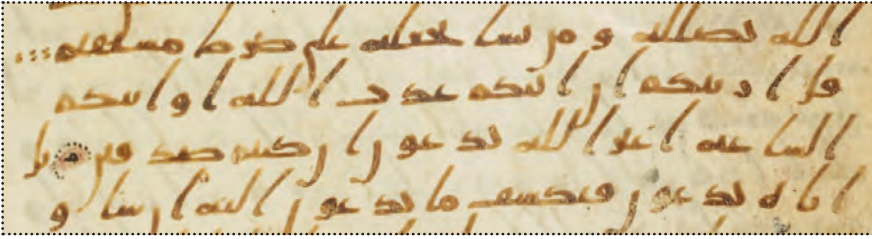 الله يضلله و من يشا يجعله على صرط مستقيم
قل اريتكم ان اتيكم عذب الله او اتتكم
الساعه اغير الله تدعون ان كنتم صدقين بل
اياه تدعون فيكشف ما تدعون اليه ان شا و